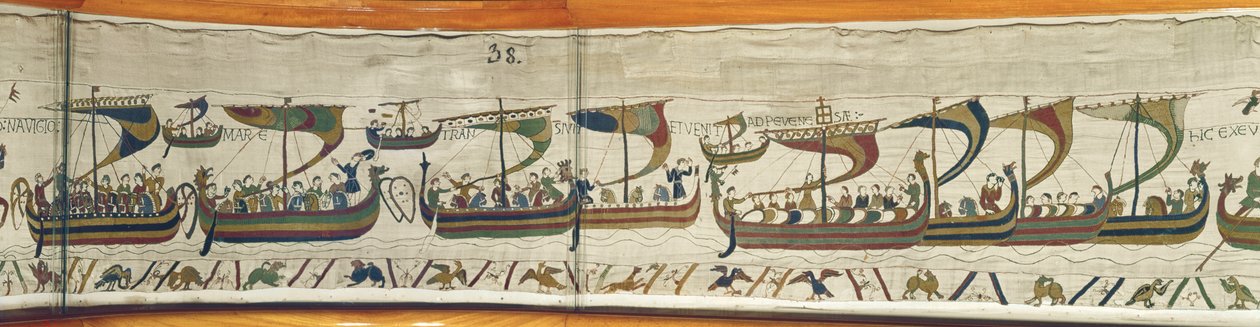 38.
O: NAVIGIO: MARE TRAN SIVIT ET VENIT AD PEVENE SÆ:- HIC EXEV